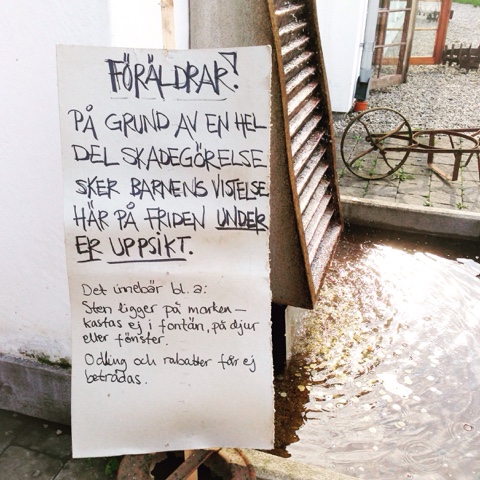 FÖRÄLDRAR!
PÅ GRUND AV EN HEL
DEL SKADEGÖRELSE
SKER BARNENS VISTELSE
HÄR PÅ FRIDEN UNDER
ER UPPSIKT.
Det innebär bl.a:
Sten ligger på marken –
kastas ej i fontän, på djur
eller fönster.
Odling och rabatter får ej
beträdas.